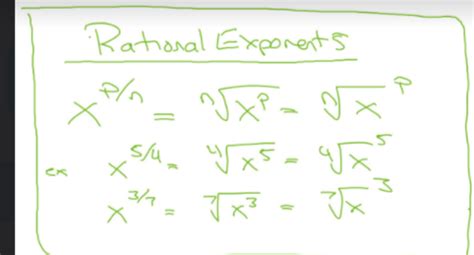 Rational Exponents
x^{p/n} = ⁿ√(x^p) = ⁿ√x^p
ex x^{5/4} = ⁴√(x^5) = ⁴√x^5
x^{3/7} = ⁷√(x^3) = ⁷√x^3